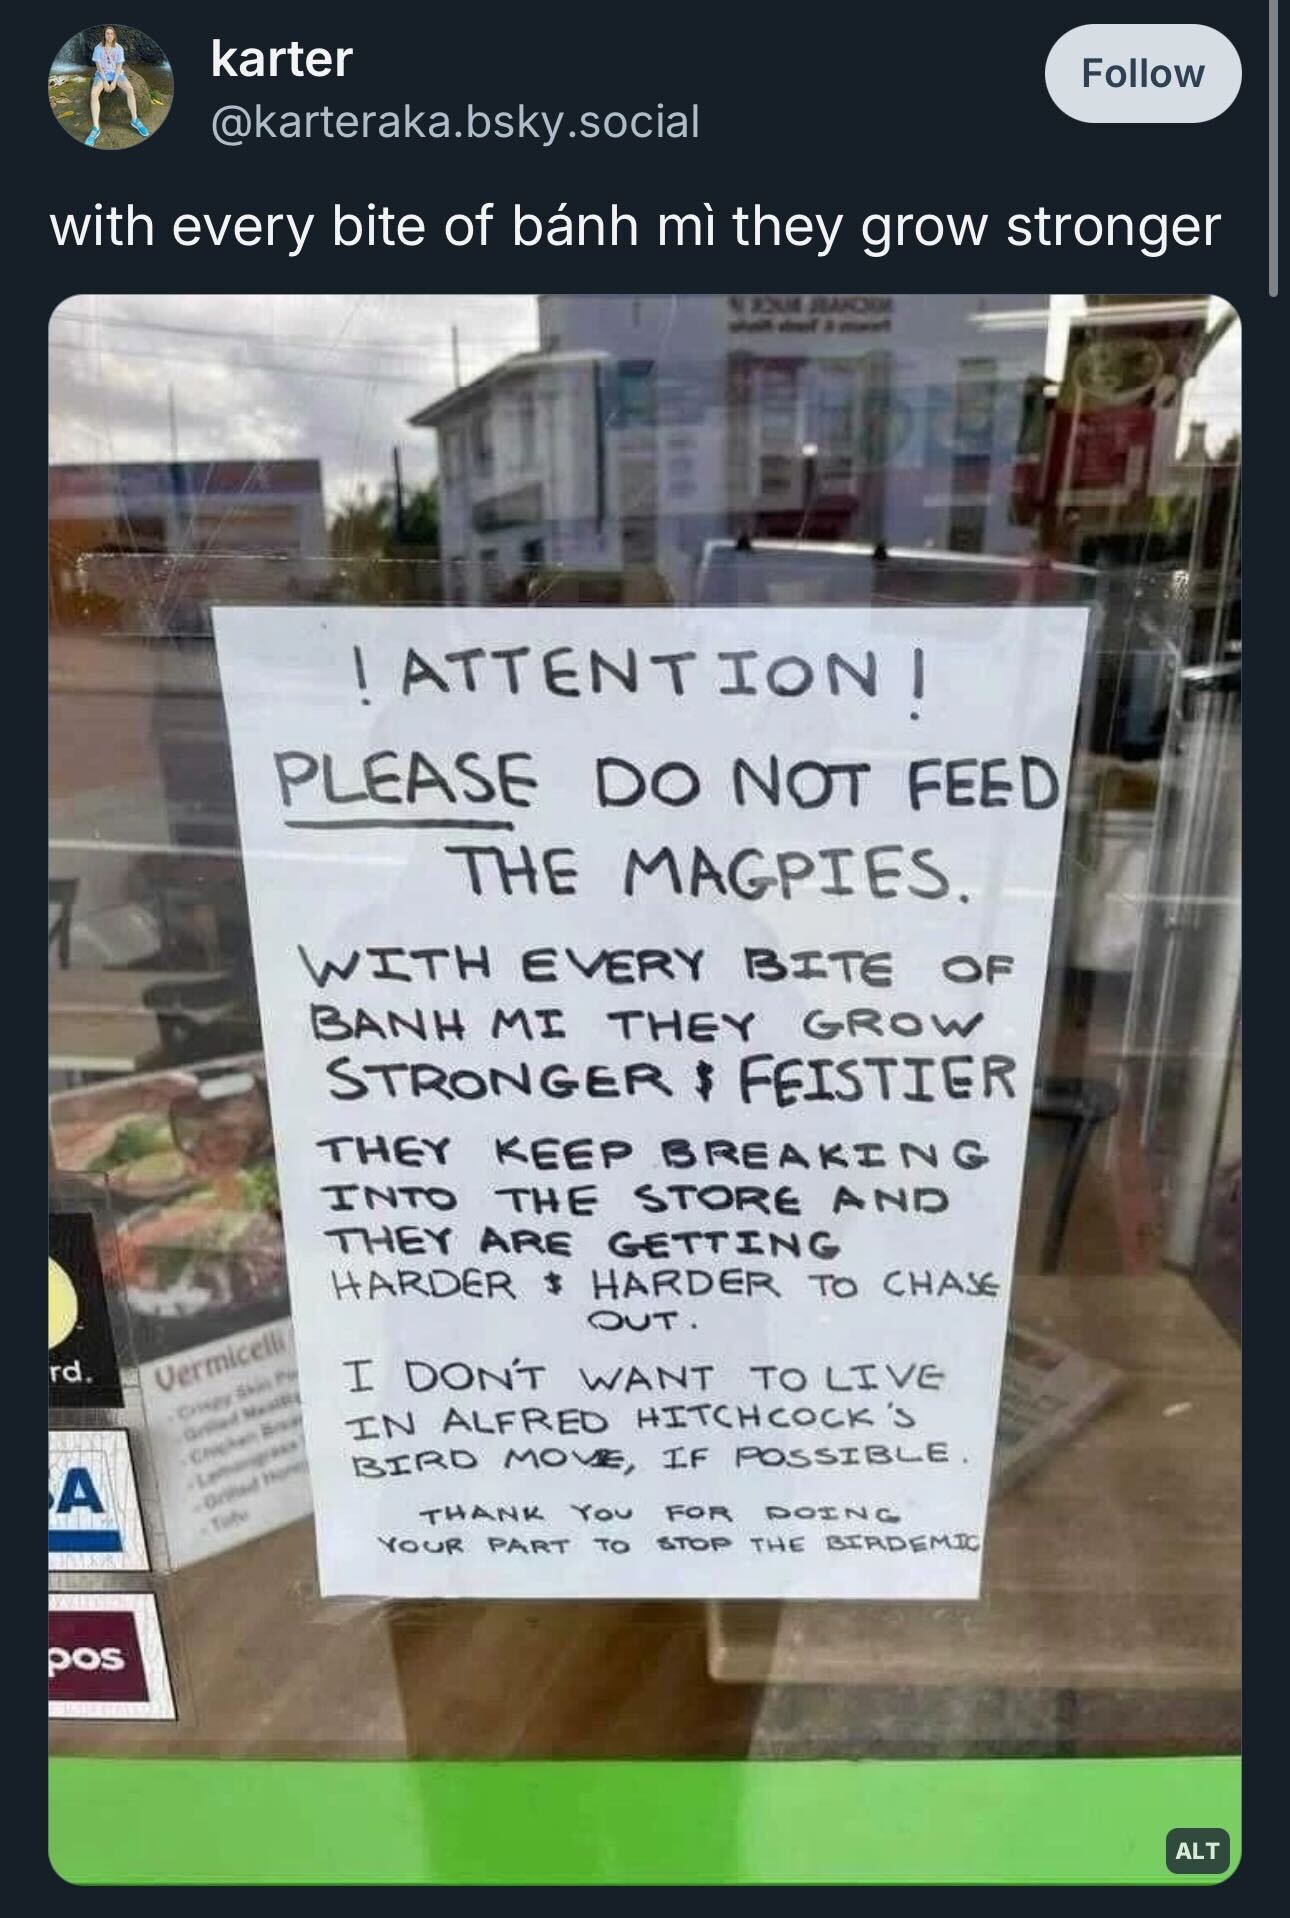 karter
@karteraka.bsky.social
Follow
with every bite of bánh mì they grow stronger
! ATTENTION !
PLEASE DO NOT FEED
THE MAGPIES.
WITH EVERY BITE OF
BANH MI THEY GROW
STRONGER & FEISTIER
THEY KEEP BREAKING
INTO THE STORE AND
THEY ARE GETTING
HARDER & HARDER TO CHASE
OUT.
I DON'T WANT TO LIVE
IN ALFRED HITCHCOCK'S
BIRD MOVIE, IF POSSIBLE.
THANK YOU FOR DOING
YOUR PART TO STOP THE BIRDEMIC
rd.
Vermicelli
- Tofu
A
pos
ALT